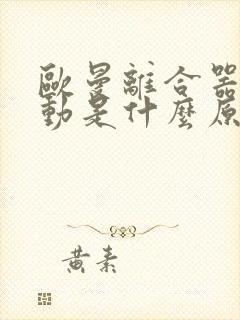 歐曼離合器
動是什麼原
黃素